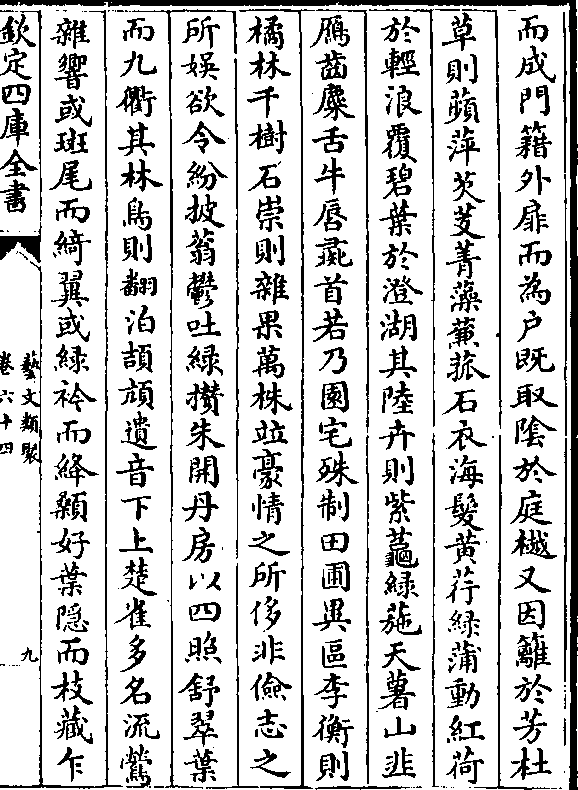 而成門籍外扉而為户既取陰於庭樾又因籬於芳杜
草則蘋萍芡芰菁藻蒹菰石衣海髮黄荇緑蒲動紅荷
於輕浪覆碧葉於澄湖其陸卉則紫虌緑葹天蓍山韭
鴈齒麋舌牛唇彘首若乃園宅殊制田圃異區李衡則
橘林千樹石崇則雜果萬株竝豪情之所侈非儉志之
所娱欲令紛披蓊鬱吐緑攅朱開丹房以四照舒翠葉
而九衢其林鳥則翻泊頡頏遺音下上楚雀多名流鶯
雜響或斑尾而綺翼或緑衿而絳顙好葉隠而枝藏乍
欽定四庫全書
藝文類聚
卷六十四
九